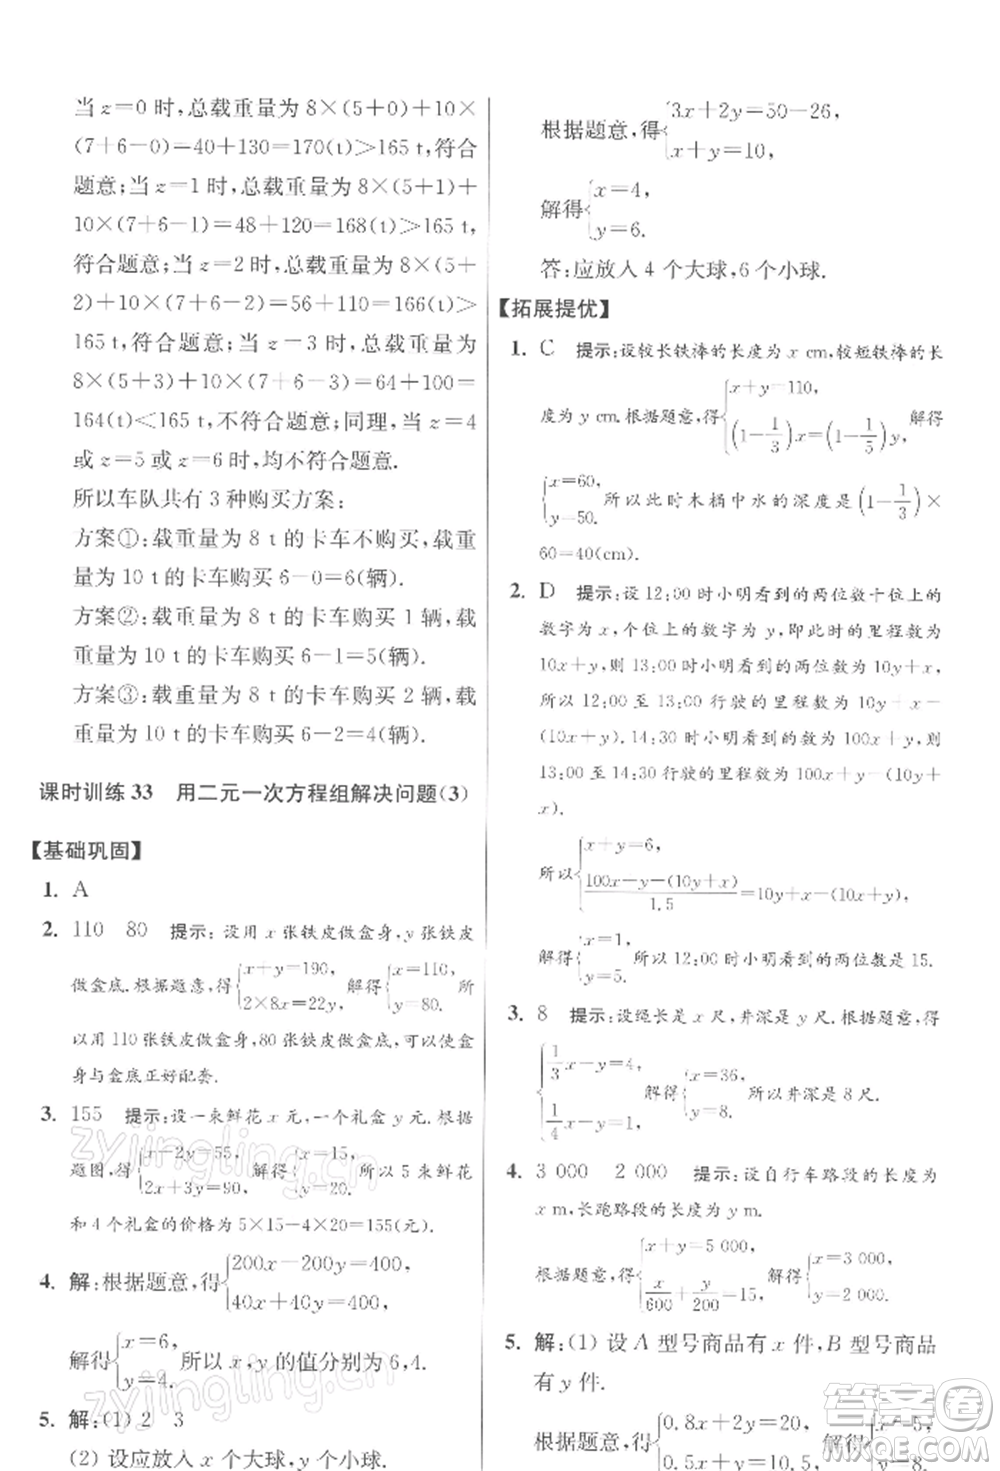 当 z=0 时,总载重量为 8×(5+0)+10×
(7+6-0)=40+130=170(t)>165 t,符合
题意;当 z=1 时,总载重量为 8×(5+1)+
10×(7+6-1)=48+120=168(t)>165 t,
符合题意;当 z=2 时,总载重量为 8×(5+
2)+10×(7+6-2)=56+110=166(t)>
165 t,符合题意;当 z=3 时,总载重量为
8×(5+3)+10×(7+6-3)=64+100=
164(t)<165 t,不符合题意;同理,当 z=4
或 z=5 或 z=6 时,均不符合题意.
所以车队共有 3 种购买方案:
方案①:载重量为 8 t 的卡车不购买,载重
量为 10 t 的卡车购买 6-0=6(辆).
方案②:载重量为 8 t 的卡车购买 1 辆,载
重量为 10 t 的卡车购买 6-1=5(辆).
方案③:载重量为 8 t 的卡车购买 2 辆,载
重量为 10 t 的卡车购买 6-2=4(辆).
课时训练 33 用二元一次方程组解决问题(3)
【基础巩固】
1. A
2. 110 80 提示:设用 x 张铁皮做盒身,y 张铁皮
做盒底.根据题意,得{x+y=190, 2×8x=22y, 解得{x=110, y=80. 所
以用 110 张铁皮做盒身,80 张铁皮做盒底,可以使盒
身与盒底正好配套.
3. 155 提示:设一束鲜花 x 元,一个礼盒 y 元.根据
题图,得{x+2y=55, 2x+3y=90, 解得{x=15, y=20. 所以 5 束鲜花
和 4 个礼盒的价格为 5×15+4×20=155(元).
4. 解:根据题意,得{200x-200y=400, 40x+40y=400,
解得{x=6, y=4. 所以 x,y 的值分别为 6,4.
5. 解:(1) 2 3
(2) 设应放入 x 个大球,y 个小球.
根据题意,得{3x+2y=50-26, x+y=10,
解得{x=4, y=6.
答:应放入 4 个大球,6 个小球.
【拓展提优】
1. C 提示:设较长铁棒的长度为 x cm,较短铁棒的长
度为 y cm.根据题意,得{x+y=110, (1-1/3)x=(1-1/5)y, 解得
{x=60, y=50. 所以此时木桶中水的深度是(1-1/3)×
60=40(cm).
2. D 提示:设 12:00 时小明看到的两位数十位上的
数字为 x,个位上的数字为 y,即此时的里程数为
10x+y,则 13:00 时小明看到的两位数为 10y+x,
所以 12:00 至 13:00 行驶的里程数为 10y+x-
(10x+y).14:30 时小明看到的数为 100x+y,则
13:00 至 14:30 行驶的里程数为 100x+y-(10y+
x).
所以{x+y=6, (100x+y-(10y+x))/1.5=10y+x-(10x+y),
解得{x=1, y=5. 所以 12:00 时小明看到的两位数是 15.
3. 8 提示:设绳长是 x 尺,井深是 y 尺.根据题意,得
{1/3x-y=4, 1/4x-y=1, 解得{x=36, y=8. 所以井深是 8 尺.
4. 3 000 2 000 提示:设自行车路段的长度为
x m,长跑路段的长度为 y m.
根据题意,得{x+y=5 000, x/600+y/200=15, 解得{x=3 000, y=2 000.
5. 解:(1) 设 A 型号商品有 x 件,B 型号商品
有 y 件.
根据题意,得{0.8x+2y=20, 解得{x=5,
zyjingling.cn
zyjingling.cn
答案圈
MXQE.COM